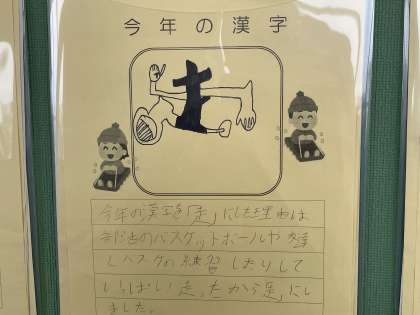 今年の漢字
走
今年の漢字を「走」にした理由は
バスケットボールや
バスケの練習したりして
いっぱい走ったから「走」にし
ました。